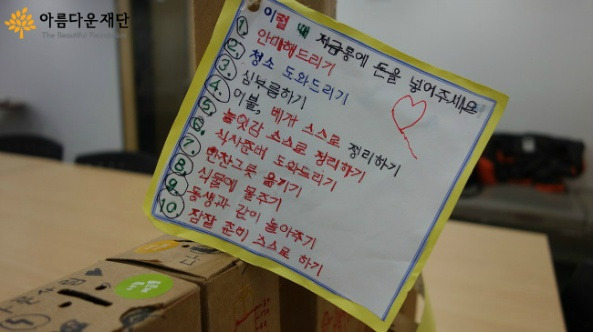 아름다운재단
The Beautiful Foundation
이럴 때 저금통에 돈을 넣어주세요
① 안마해드리기
② 청소 도와드리기
③ 심부름하기
④ 이불, 베개 스스로 정리하기
⑤ 놀잇감 스스로 정리하기
⑥ 식사준비 도와드리기
⑦ 반찬그릇 옮기기
⑧ 식물에 물주기
⑨ 동생과 같이 놀아주기
⑩ 잠잘 준비 스스로 하기